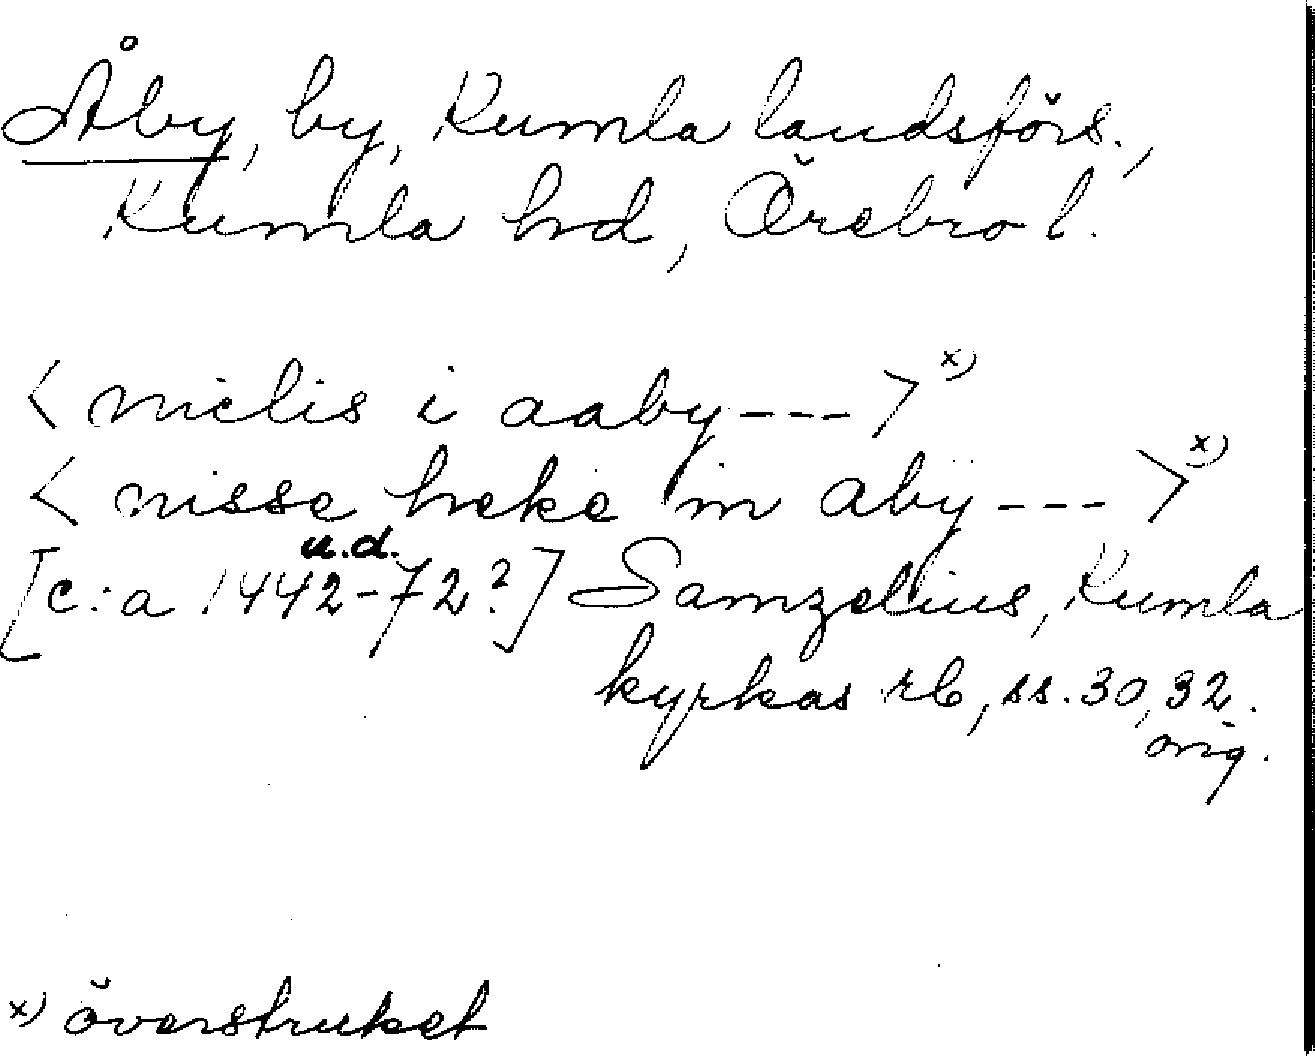 Åby, by, Kumla landsförs.,
Kumla hd, Örebro l.
< nielis i aaby --- > x)
< nisse heke in abÿ --- > x)
u.d.
[c:a 1442-72?] Samzelius, Kumla
kyrkas rb, ss. 30, 32.
orig.
x) överstruket